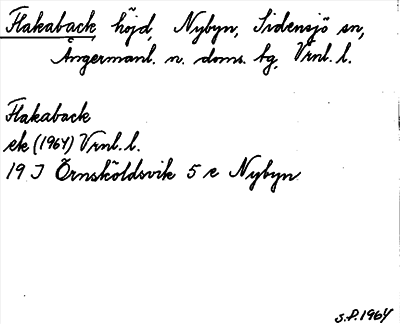 Flakaback höjd, Nybyn, Sidensjö sn,
Ångermanl. n. doms. bg, Vrnl. l.
Flakaback
ek (1964) Vrnl. l.
19 J Örnsköldsvik 5 e Nybyn
S.P. 1964